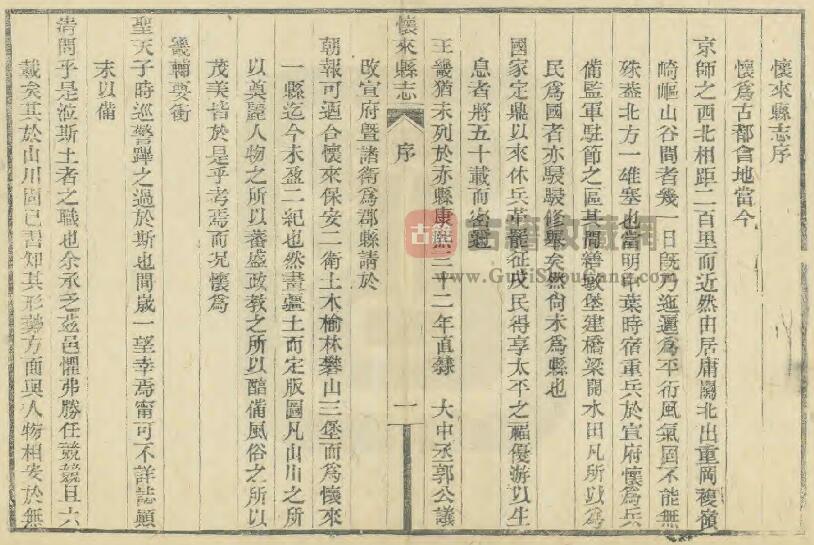 懷來縣志序
懷為古都會地當今
京師之西北相距二百里而近然由居庸關北出重岡複嶺
崎嶇山谷間者幾一日既乃迤邐為平衍風氣固不能無
殊蓋北方一雄塞也當明中葉時宿重兵於宣府懷為兵
備監軍駐節之區其間繕敏堡建橋梁開水田凡所以為
民為國者亦駸駸修舉矣然尚未為縣也
國家定鼎以來休兵革罷征戍民得享太平之福優游以生
息者將五十載而密邇
王畿猶未列於赤縣康熙三十二年直隸 大中丞郭公議
懷來縣志
序
一
改宣府暨諸衛為郡縣請於
朝報可迺合懷來保安二衛土木榆林礬山三堡而為懷來
一縣迄今未盈二紀也然畫疆土而定版圖凡山川之所
以奠麗人物之所以蕃盛政教之所以醅備風俗之所以
茂美皆於是乎考焉而況懷為
畿輔要衝
聖天子時巡警蹕之過於斯也間歲一望幸焉甯可不詳誌顛
末以備
清問乎是涖斯土者之職也余承乏茲邑懼弗勝任兢兢且六
載矣其於山川間已書知其形勢方面與人物相安於無
古籍收藏網
www.GuJiShouCang.com
古籍